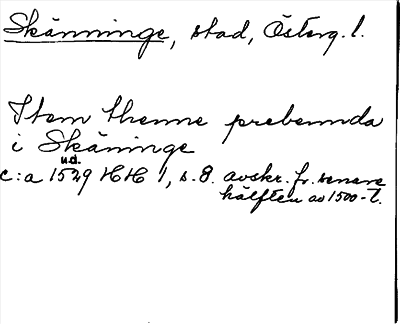 Skänninge, stad, Österg. l.
Item thenne prebennda
i Skäninge
u.d.
c:a 1529 HH 1, s. 8. avskr. fr. senare
hälften av 1500-t.